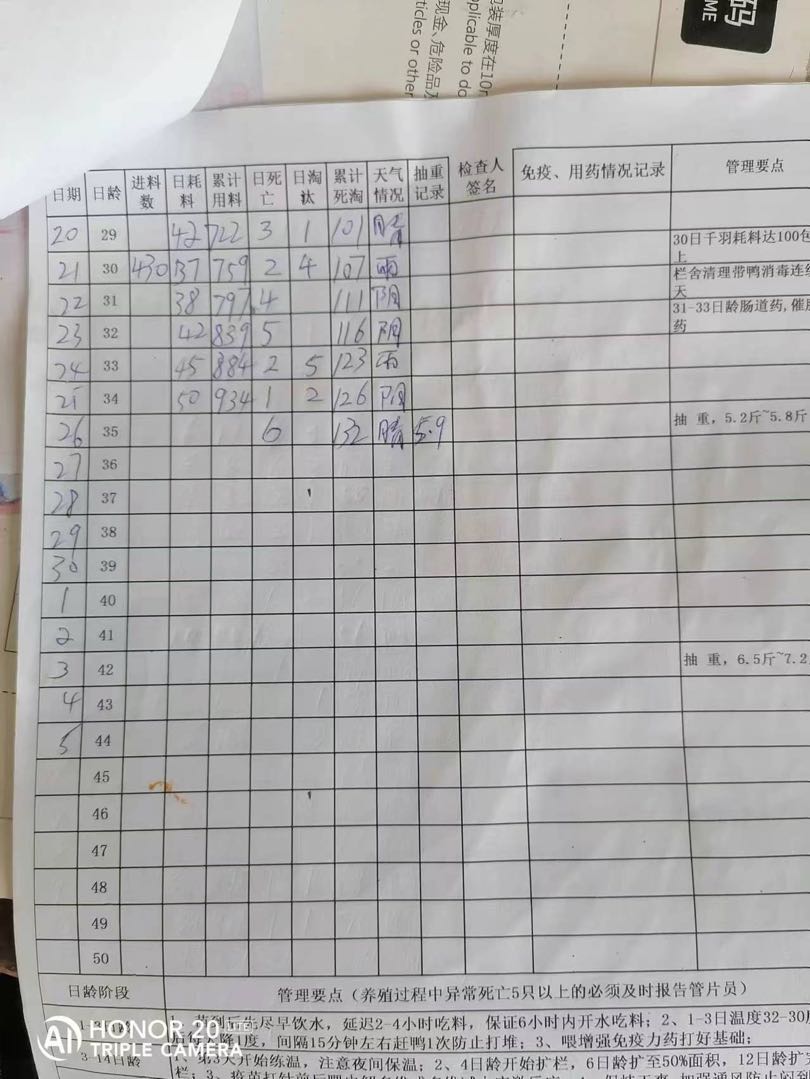 码
ME
包装厚度在10m
pplicable to do
现金、危险品及
ticles or other
日期 日龄 进料数 日耗料 累计用料 日死亡 日淘汰 累计死淘 天气情况 抽重记录 检查人签名 免疫、用药情况记录 管理要点
20 29 42 722 3 1 101 晴
21 30 430 37 759 2 4 107 雨 30日千羽耗料达100包 上
栏舍清理带鸭消毒连续 天
22 31 38 797 4 111 阴 31-33日龄肠道药,催肥 药
23 32 42 839 5 116 阴
24 33 45 884 2 5 123 雨
25 34 50 934 1 2 126 阴
26 35 6 132 晴 5.9 抽 重，5.2斤~5.8斤
27 36
28 37
29 38
30 39
1 40
2 41
3 42 抽 重，6.5斤~7.2
4 43
5 44
45
46
47
48
49
50
日龄阶段 管理要点（养殖过程中异常死亡5只以上的必须及时报告管片员）
尽早饮水，延迟2-4小时吃料，保证6小时内开水吃料；2、1-3日温度32-30度
1度，间隔15分钟左右赶鸭1次防止打堆；3、喂增强免疫力药打好基础；
3-14日龄 第3天开始练温，注意夜间保温；2、4日龄开始扩栏，6日龄扩至50%面积，12日龄扩
栏；3、疫苗打针前后
HONOR 20 LITE
AI TRIPLE CAMERA